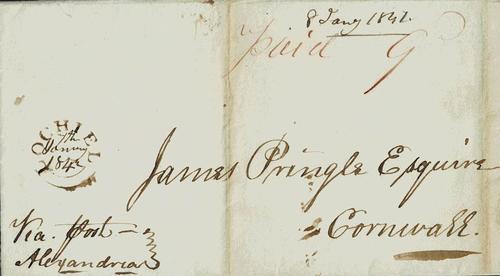 8 Jany 1842.
Paid 9
LOCHIEL
7th
January
1842
James Pringle Esquire
Cornwall.
Via. Post -
Alexandria